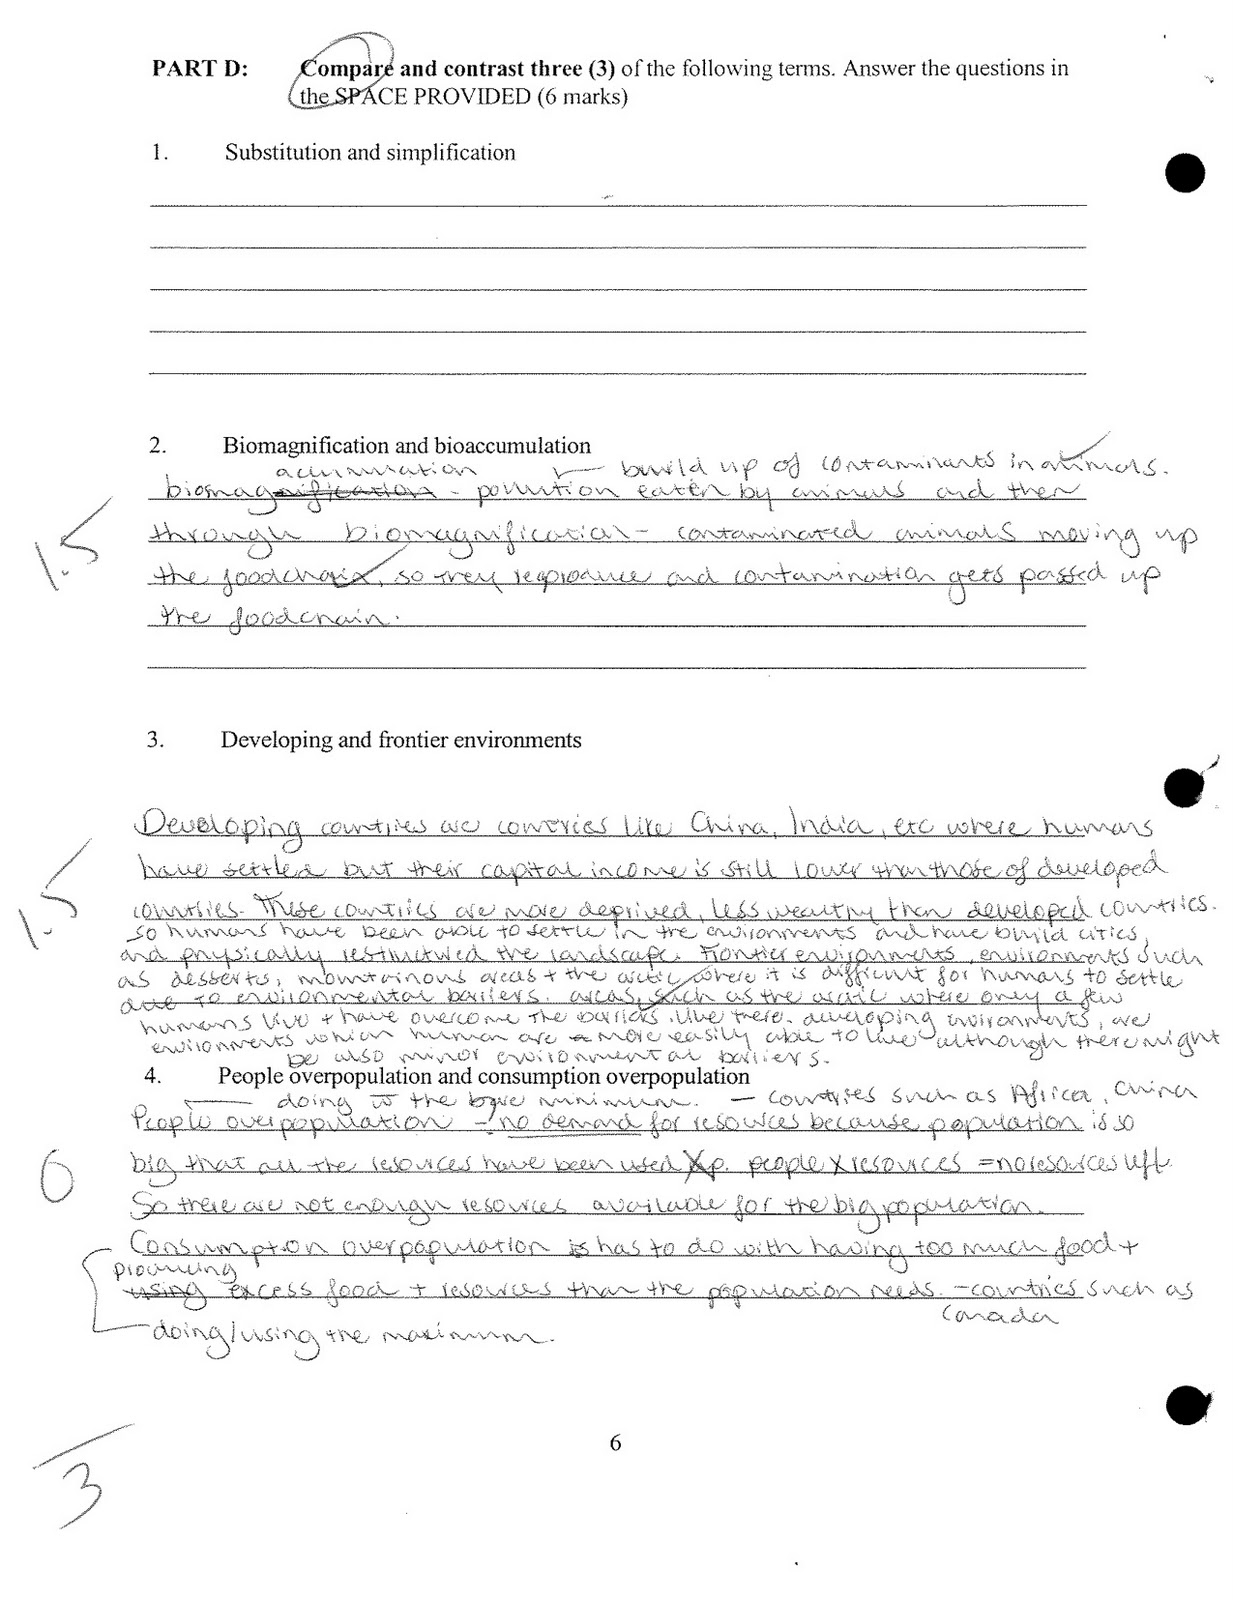 PART D: Compare and contrast three (3) of the following terms. Answer the questions in
the SPACE PROVIDED (6 marks)
1. Substitution and simplification
2. Biomagnification and bioaccumulation
accumulation build up of contaminants in animals.
biomagnification - pollution eaten by animals and then
through biomagnification - contaminated animals moving up
1.5
the foodchain, so they reproduce and contamination gets passed up
the foodchain.
3. Developing and frontier environments
Developing countries are countries like China, India, etc where humans
have settled but their capital income is still lower than those of developed
1.5
countries. These countries are more deprived, less wealthy than developed countries.
so humans have been able to settle in the environments and have build cities,
and physically the landscape. Frontier environments, environments such
as desserts, mountainous areas + the arctic where it is difficult for humans to settle
due to environmental barriers. areas, such as the arctic where only a few
humans live + have overcome the barriers. live there. developing environments, are
environments which human are more easily able to live although there might
be also minor environmental barriers.
4. People overpopulation and consumption overpopulation
doing the bare minimum. - countries such as Africa, China
People overpopulation - no demand for resources because population is so
big that all the resources have been used up. people x resources = no resources left.
0
So there are not enough resources available for the big population.
Consumption overpopulation is has to do with having too much food +
producing
using excess food + resources than the population needs. - countries such as
Canada
doing/using the maximum.
6
3